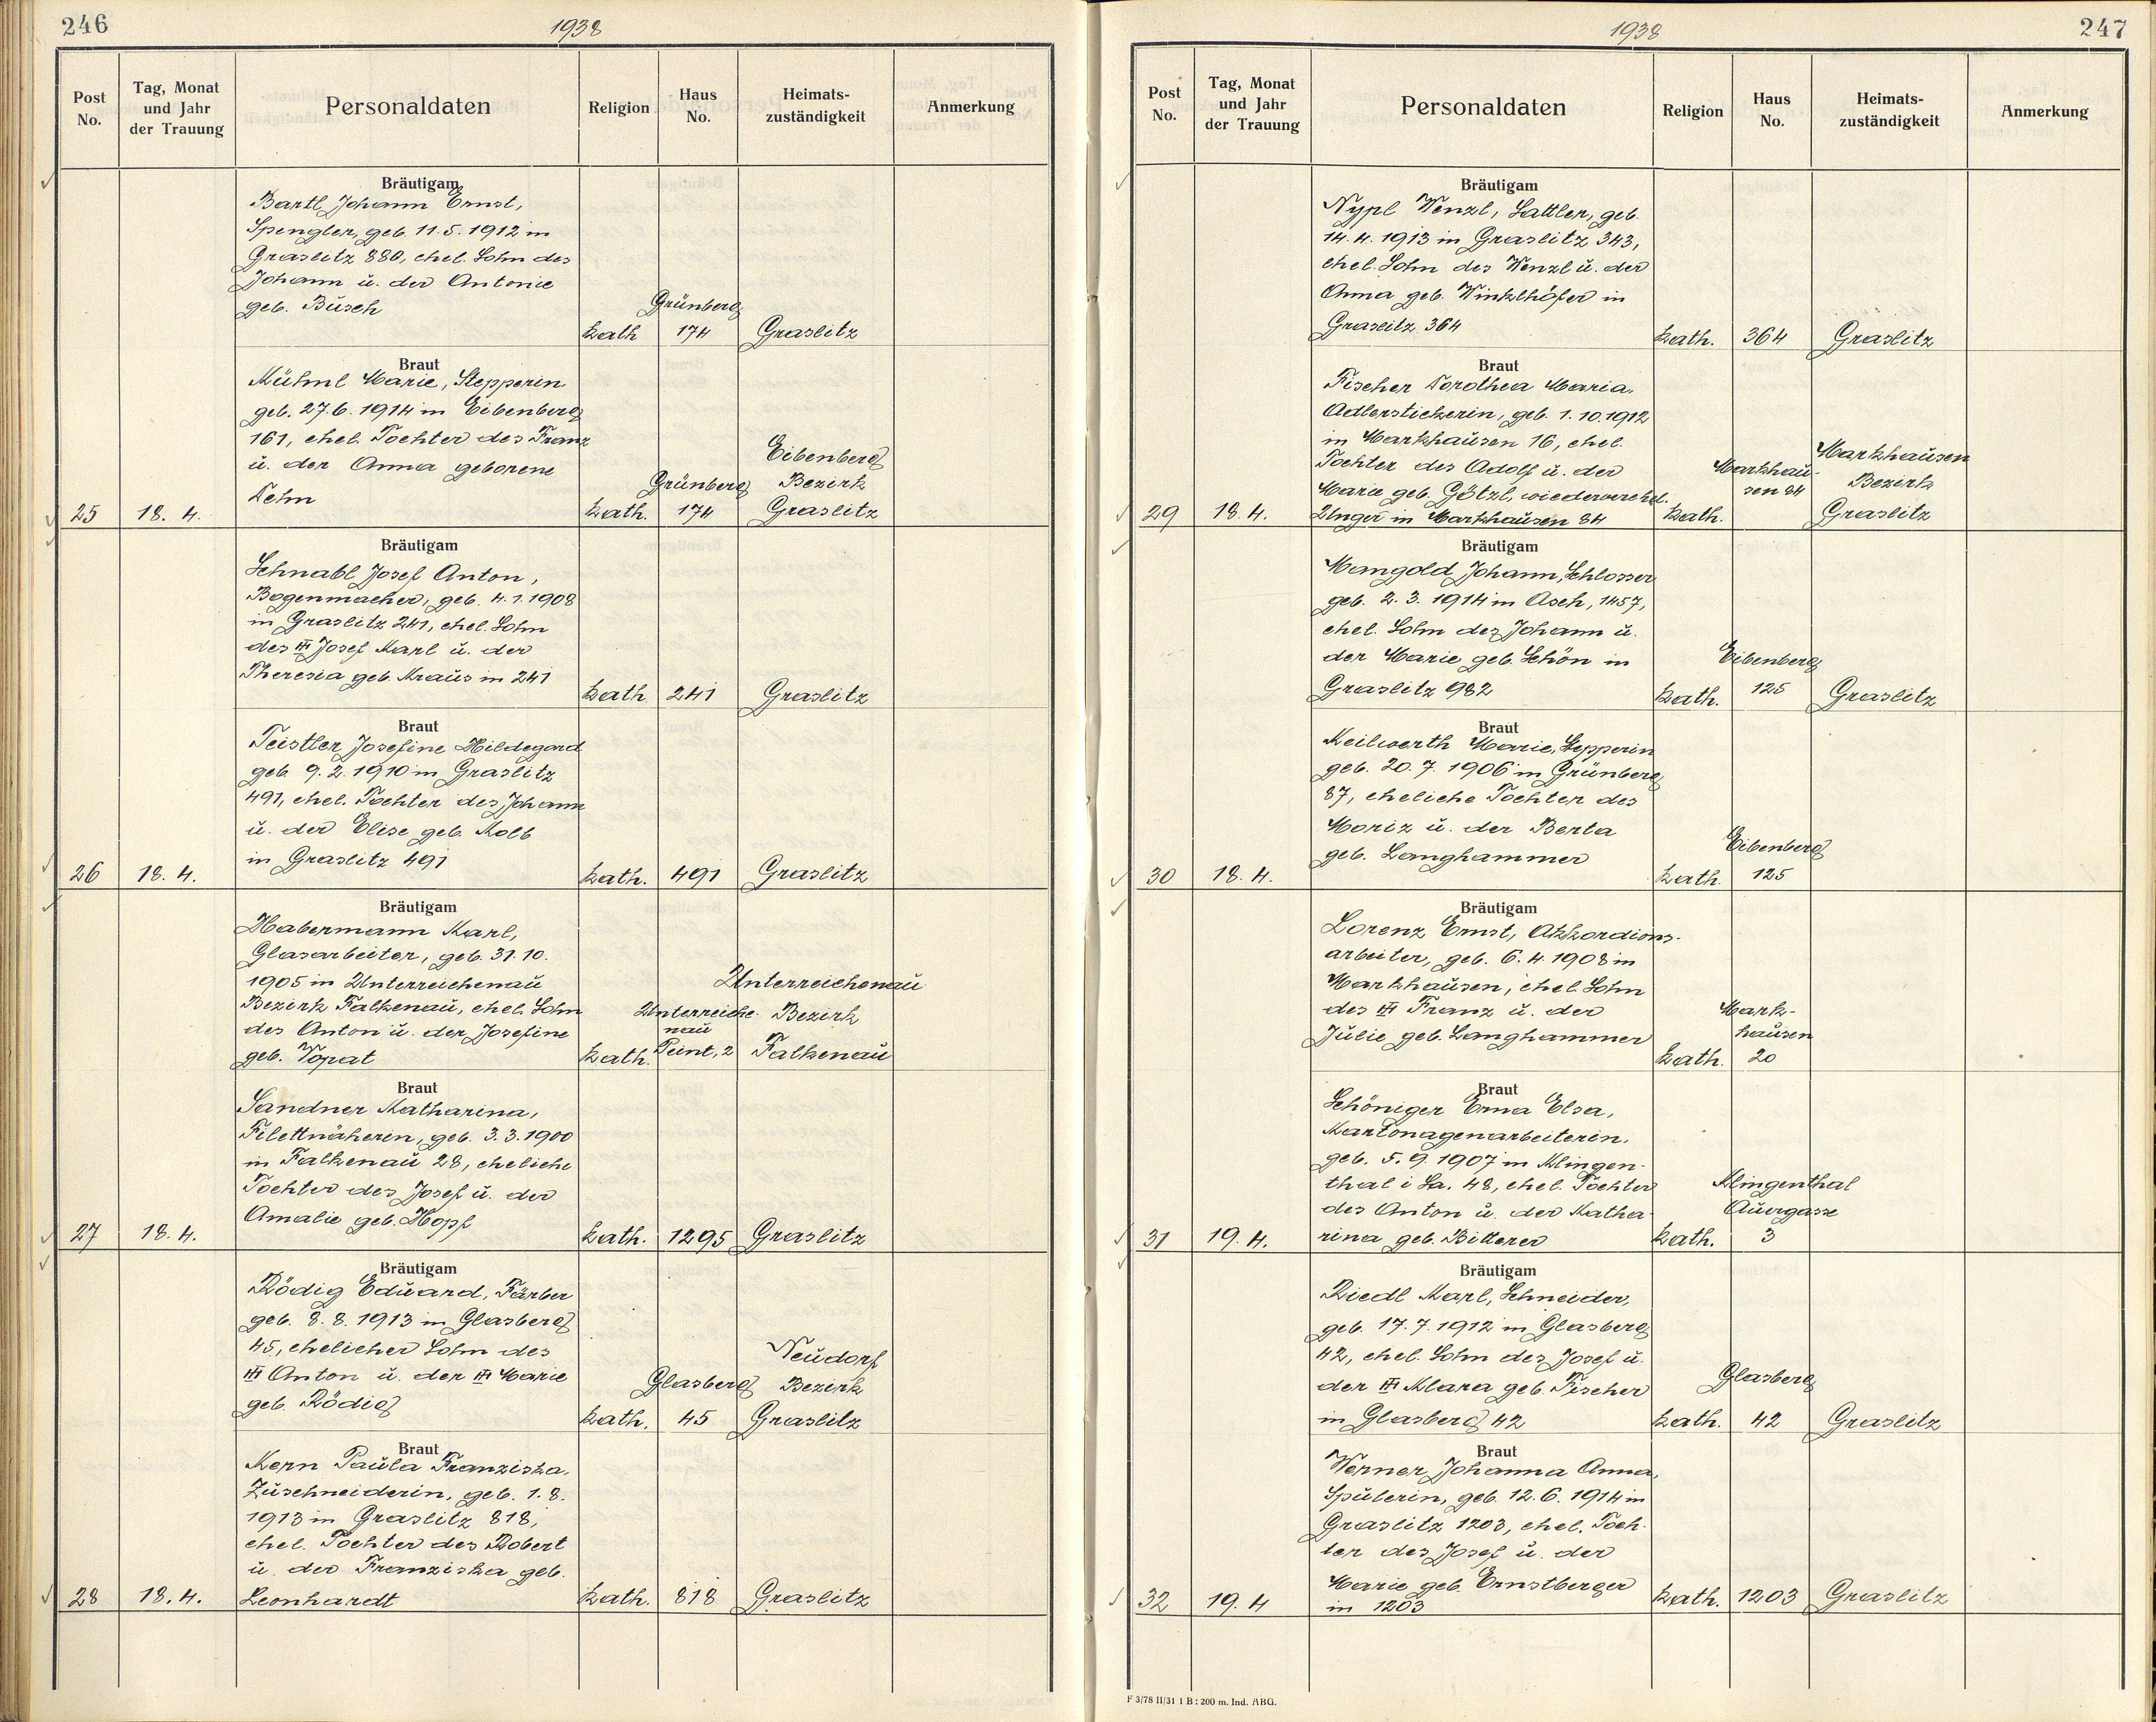 246
1938
Post No.
Tag, Monat und Jahr der Trauung
Personaldaten
Religion
Haus No.
Heimats-zuständigkeit
Anmerkung
Bräutigam
Bartl Johann Ernst,
Spengler, geb. 11.5.1912 in
Graslitz 880, ehel. Sohn des
Johann u. der Antonie
geb. Büsch
Grünberg
kath 174 Graslitz
Braut
Kühnl Marie, Stepperin
geb. 27.6.1914 in Eibenberg
161, ehel. Tochter des Franz
u. der Anna geborene
Dehn
Eibenberg
Grünberg Bezirk
25 18. 4. kath. 174 Graslitz
Bräutigam
Schnabl Josef Anton,
Bogenmacher, geb. 4.1.1908
in Graslitz 241, ehel. Sohn
des Josef Karl u. der
Theresia geb. Kraus in 241
kath 241 Graslitz
Braut
Teistler Josefine Hildegard
geb. 9.2.1910 in Graslitz
491, ehel. Tochter des Johann
u. der Elise geb. Kolb
in Graslitz 491
26 18. 4. kath. 491 Graslitz
Bräutigam
Habermann Karl,
Glasarbeiter, geb. 31.10.
1905 in Unterreichenau
Bezirk Falkenau, ehel. Sohn
des Anton u. der Josefine
geb. Vopat
Unterreichenau
Unterreiche- Bezirk
nau
kath. Peint, 2 Falkenau
Braut
Sandner Katharina,
Filettnäherin, geb. 3.3.1900
in Falkenau 28, eheliche
Tochter des Josef u. der
Amalie geb. Hopf
27 18. 4. kath. 1295 Graslitz
Bräutigam
Rödig Eduard, Färber
geb. 8.8.1913 in Glasberg
45, ehelicher Sohn des
Anton u. der Marie
geb. Rödig
Neudorf
Glasberg Bezirk
kath. 45 Graslitz
Braut
Kern Paula Franziska,
Zuschneiderin, geb. 1.8.
1913 in Graslitz 818,
ehel. Tochter des Robert
u. der Franziska geb.
28 18. 4. Leonhardt kath. 818 Graslitz
1938
247
Post No.
Tag, Monat und Jahr der Trauung
Personaldaten
Religion
Haus No.
Heimats-zuständigkeit
Anmerkung
Bräutigam
Nypl Wenzl, Sattler, geb.
14.4.1913 in Graslitz 343,
ehel. Sohn des Wenzl u. der
Anna geb. Winklhöfer in
Graslitz 364 kath. 364 Graslitz
Braut
Fischer Dorothea Maria,
Adlerstickerin, geb. 1.10.1912
in Markhausen 16, ehel.
Tochter des Adolf u. der
Marie geb. Götzl, wiederverehel.
Markhausen
Markhau- Bezirk
sen 84
29 18. 4. Unger in Markhausen 84 kath. Graslitz
Bräutigam
Mangold Johann, Schlosser
geb. 2.3.1914 in Asch, 1457,
ehel. Sohn des Johann u.
der Marie geb. Schön in
Graslitz 982
Eibenberg
kath. 125 Graslitz
Braut
Keilwerth Marie, Stepperin
geb. 20.7.1906 in Grünberg
87, eheliche Tochter des
Moriz u. der Berta
geb. Langhammer
Eibenberg
30 18. 4. kath. 125
Bräutigam
Lorenz Ernst, Akkordions-
arbeiter, geb. 6.4.1908 in
Markhausen, ehel. Sohn
des Franz u. der
Julie geb. Langhammer
Mark-
hausen
kath. 20
Braut
Schöniger Erna Elsa,
Kartonagenarbeiterin,
geb. 5.9.1907 in Klingen-
thal i Sa. 48, ehel. Tochter
des Anton u. der Katha-
Klingenthal
Auergasse
31 19. 4. rina geb. Bitterer kath. 3
Bräutigam
Riedl Karl, Schneider,
geb. 17.7.1912 in Glasberg
42, ehel. Sohn des Josef u.
der Klara geb. Fischer
in Glasberg 42
Glasberg
kath. 42 Graslitz
Braut
Werner Johanna Anna,
Spulerin, geb. 12.6.1914 in
Graslitz 1203, ehel. Toch-
ter des Josef u. der
Marie geb. Ernstberger
in 1203
32 19. 4 kath. 1203 Graslitz
F 3/78 II/31 1 B : 200 m. Ind. ABG.